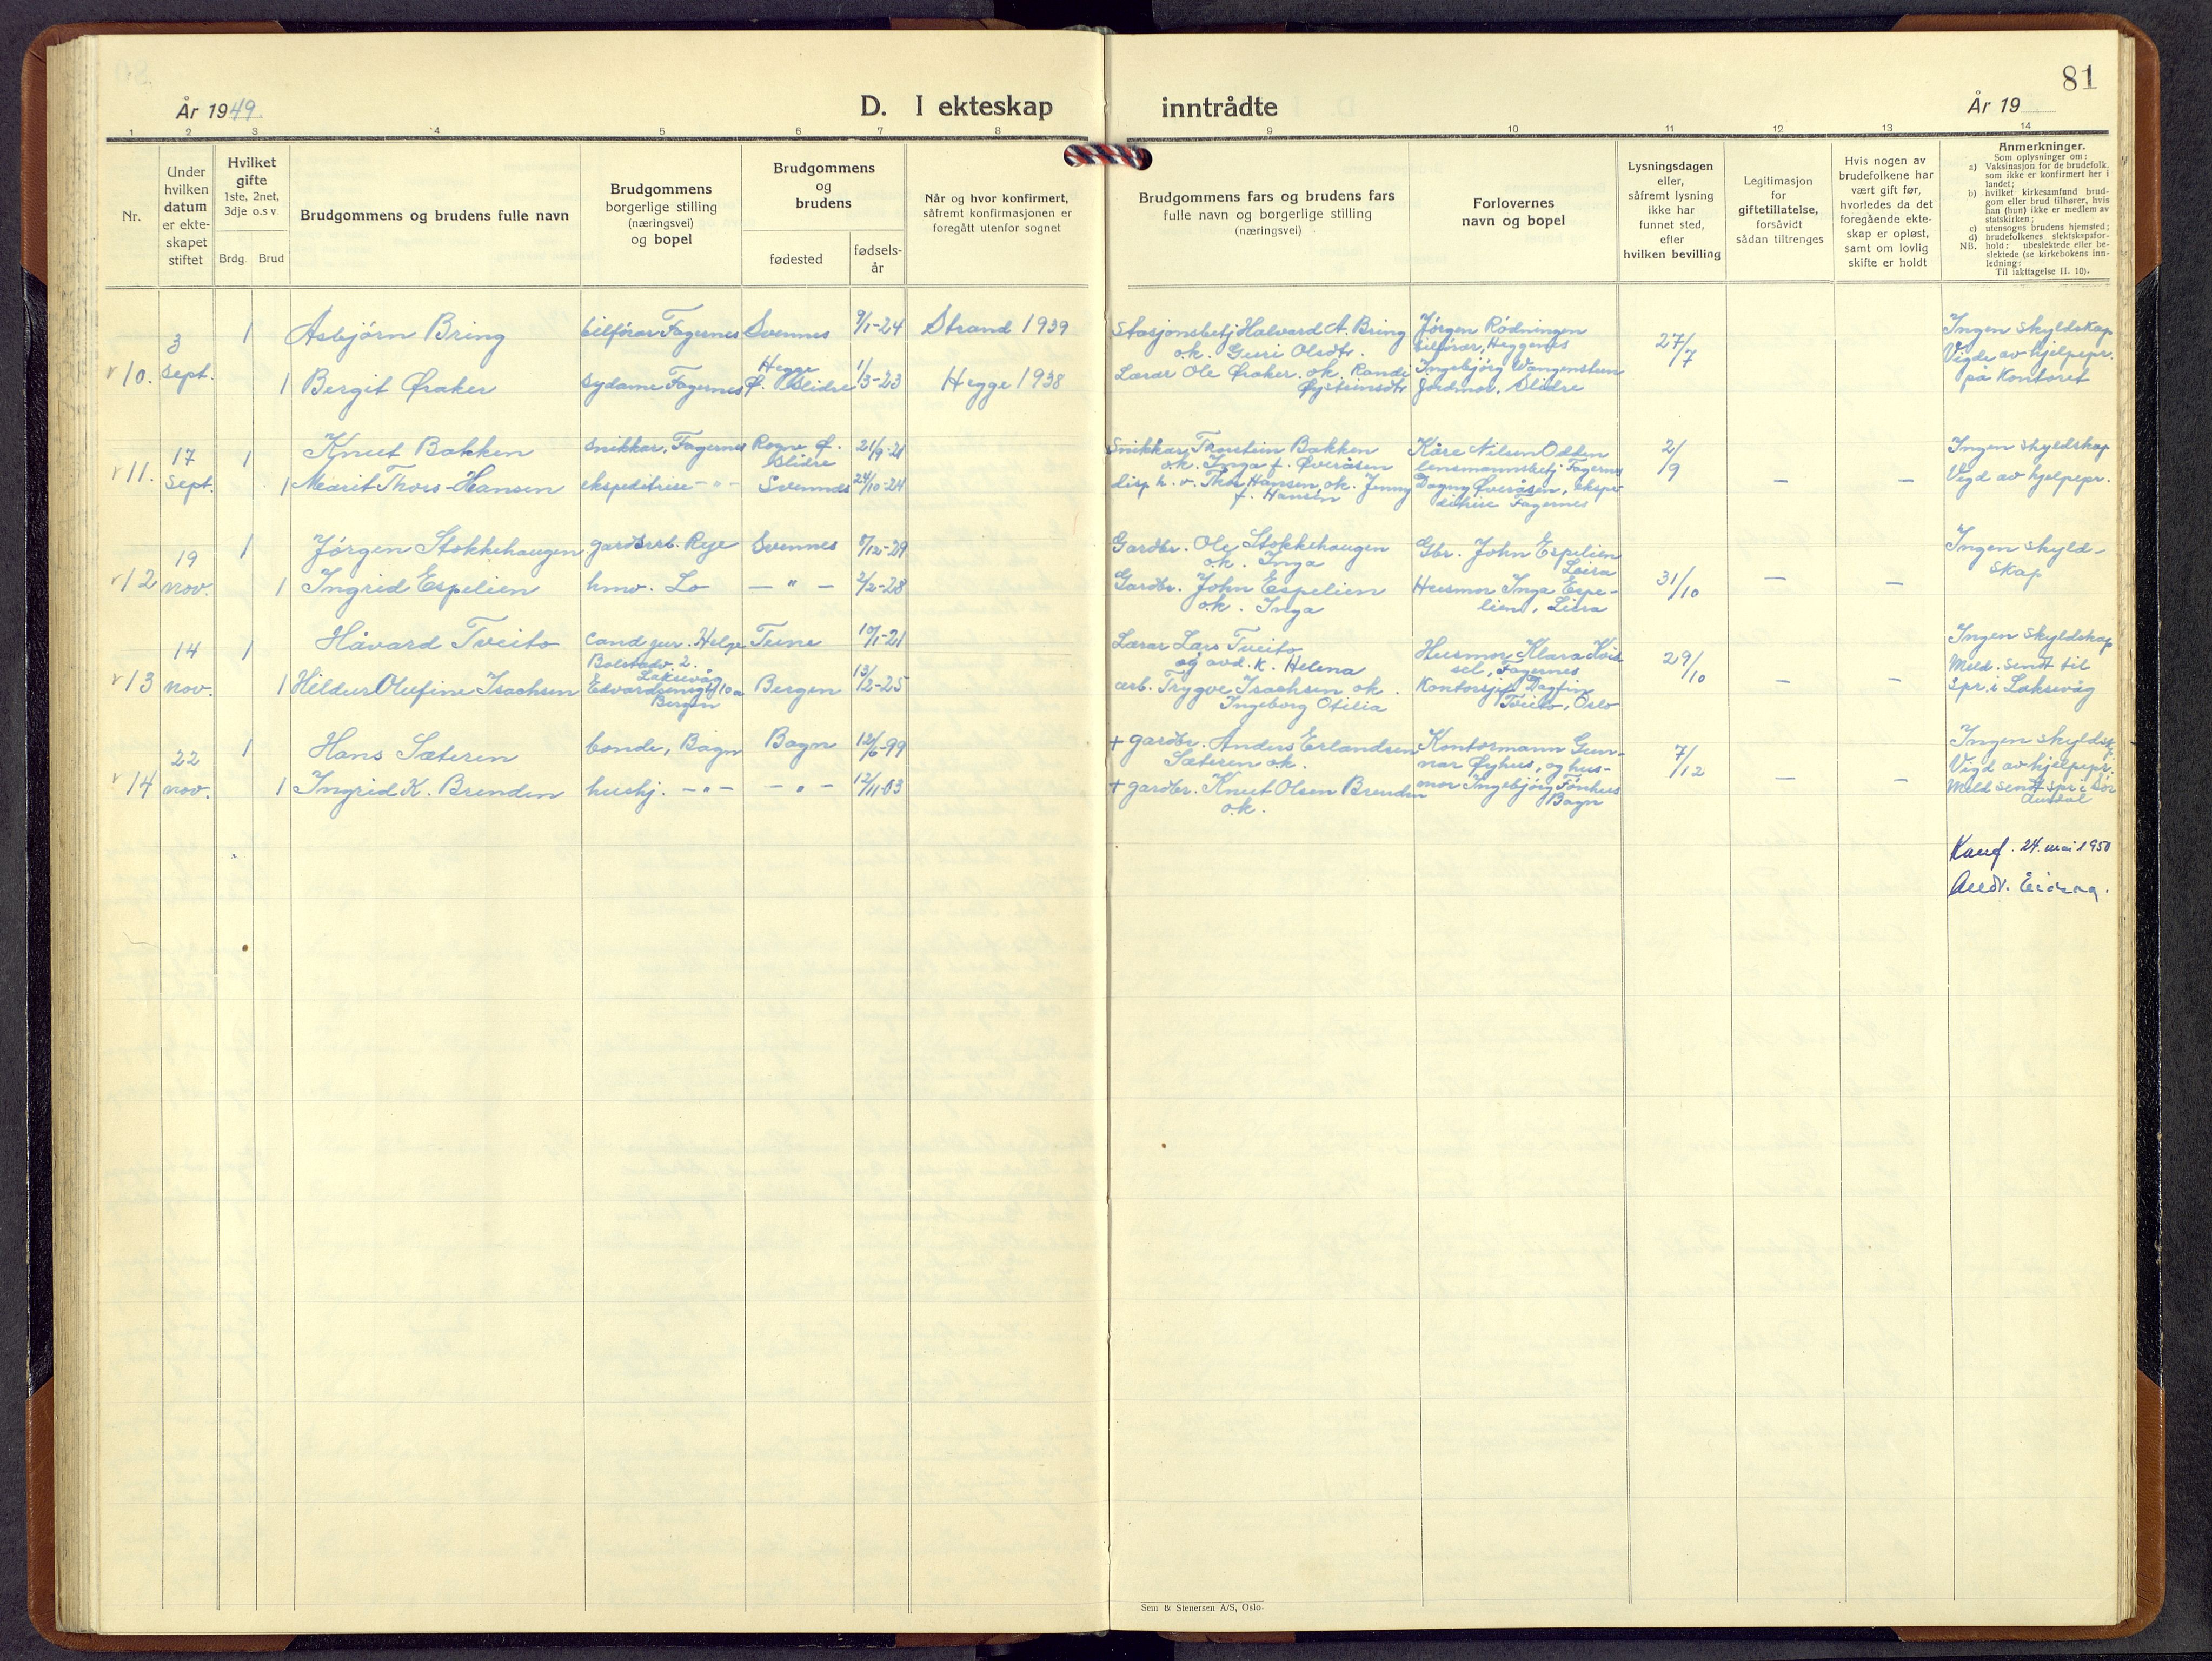 81
År 1949
D. I ekteskap
inntrådte
År 19
1 2 3 4 5 6 7 8
9 10 11 12 13 14
Nr.
Under
hvilken
datum
er ekte-
skapet
stiftet
Hvilket
gifte
1ste, 2net,
3dje o.s v.
Brdg Brud
Brudgommens og brudens fulle navn
Brudgommens
borgerlige stilling
(næringsvei)
og bopel
Brudgommens
og
brudens
fødested
fødsels-
år
Når og hvor konfirmert,
såfremt konfirmasjonen er
foregått utenfor sognet
Brudgommens fars og brudens fars
fulle navn og borgerlige stilling
(næringsvei)
Forlovernes
navn og bopel
Lysningsdagen
eller,
såfremt lysning
ikke har
funnet sted,
efter
hvilken bevilling
Legitimasjon
for
giftetillatelse,
forsåvidt
sådan tiltrenges
Hvis nogen av
brudefolkene har
vært gift før,
hvorledes da det
foregående ekte-
skap er opløst,
samt om lovlig
skifte er holdt
Anmerkninger.
Som oplysninger om:
a) Vaksinasjon for de brudefolk.
som ikke er konfirmert her i
landet;
b) hvilket kirkesamfund brud-
gom eller brud tilhører, hvis
han (hun) ikke er medlem av
statskirken;
c) utensogns brudens hjemsted;
d) brudefolkenes slektskapsfor-
NB. hold: ubeslektede eller be-
slektede (se kirkebokens inn-
ledning:
Til iakttagelse II. 10).
10.
3
sept.
1 Asbjörn Bring
bilförar Fagernes
Svennes
9/1-24
Strand 1939
Stasjonsbetj Halvard A. Bring
o.k. Guri Olsdtr.
Jörgen Rödningen
bilförar, Heggenes
27/7
Ingen skyldskap
Vigde av hjelpepr.
på kontoret
1 Bergit Øraker
sydame Fagernes
Hegge
Ø. Slidre
1/3-23
Hegge 1938
Lærar Ole Øraker. ok. Randi
Øysteinsdtr
Ingebjörg Wangensteen
Jordmor. Slidre
11.
17
sept.
1 Knut Bakken
snikkar, Fagernes
Rogne Ø.
Slidre
21/9-21
Snikkar Thorstein Bakken
o.k. Inga f. Øveråsen
Kåre Nilsen Odden
lensmannsbetj. Fagernes
2/9
Ingen skyldskap
Vigd av hjelpepr.
1 Marit Thors-Hansen
ekspeditrise - " -
Svennes
24/10-24
disp h. v. Thor Hansen, ok. Jenny
f. Hansen
Dagny Øveråsen, ekspe-
ditrise Fagernes
12
19
nov.
1 Jörgen Stokkehaugen
gardsarb. Rye
Svennes
8/12-29
Gardbr. Ole Stokkehaugen
o.k. Inga
Gbr. John Espelien
Leira
31/10
Ingen skyld-
skap
1 Ingrid Espelien
hmv. Lo
- " -
2/2-28
Gardbr. John Espelien
o.k. Inga
Husmor Inga Espe-
lien, Leira
13
14
nov.
1 Håvard Tveito
cand jur. Helge
Bolstadv. 2.
Tune
10/1-21
Lærar Lars Tveito
og avd. k. Helena
Husmor Klara Kvis
sel, Fagernes
29/10
Ingen skyldskap
Meld. sendt til
spr. i Laksevåg
1 Hildur Olufine Isachsen
Laksevåg
Edvardsensgt 10a
Bergen
Bergen
13/2-25
arb. Trygve Isachsen ok.
Ingeborg Otilia
Kontorsjef Dagfin
Tveito, Oslo
14
22
nov.
1 Hans Sæteren
bonde, Bagn
Bagn
12/6-99
+ gardbr. Anders Erlandsen
Sæteren o.k.
Kontormann Gun-
nar Øyhus, og hus-
mor Ingebjörg Fönhus
Bagn
7/12
Ingen skyldsk.
Vigd av hjelpepr.
Meld sendt spr i Sör
Aurdal
1 Ingrid K. Brenden
hushj. - " -
- " -
12/11-03
+ gardbr. Knut Olsen Brenden
o.k.
24. mai 1950
Sem & Stenersen A/S, Oslo.